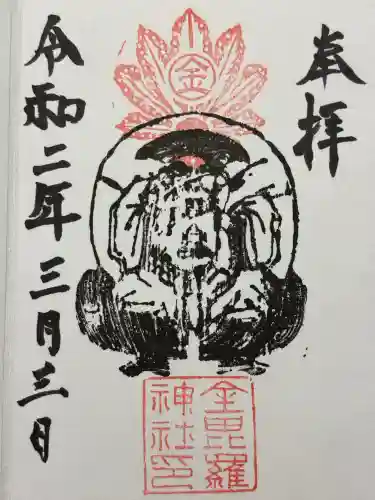 奉拝
金
金毘羅
神社印
令和二年三月三日